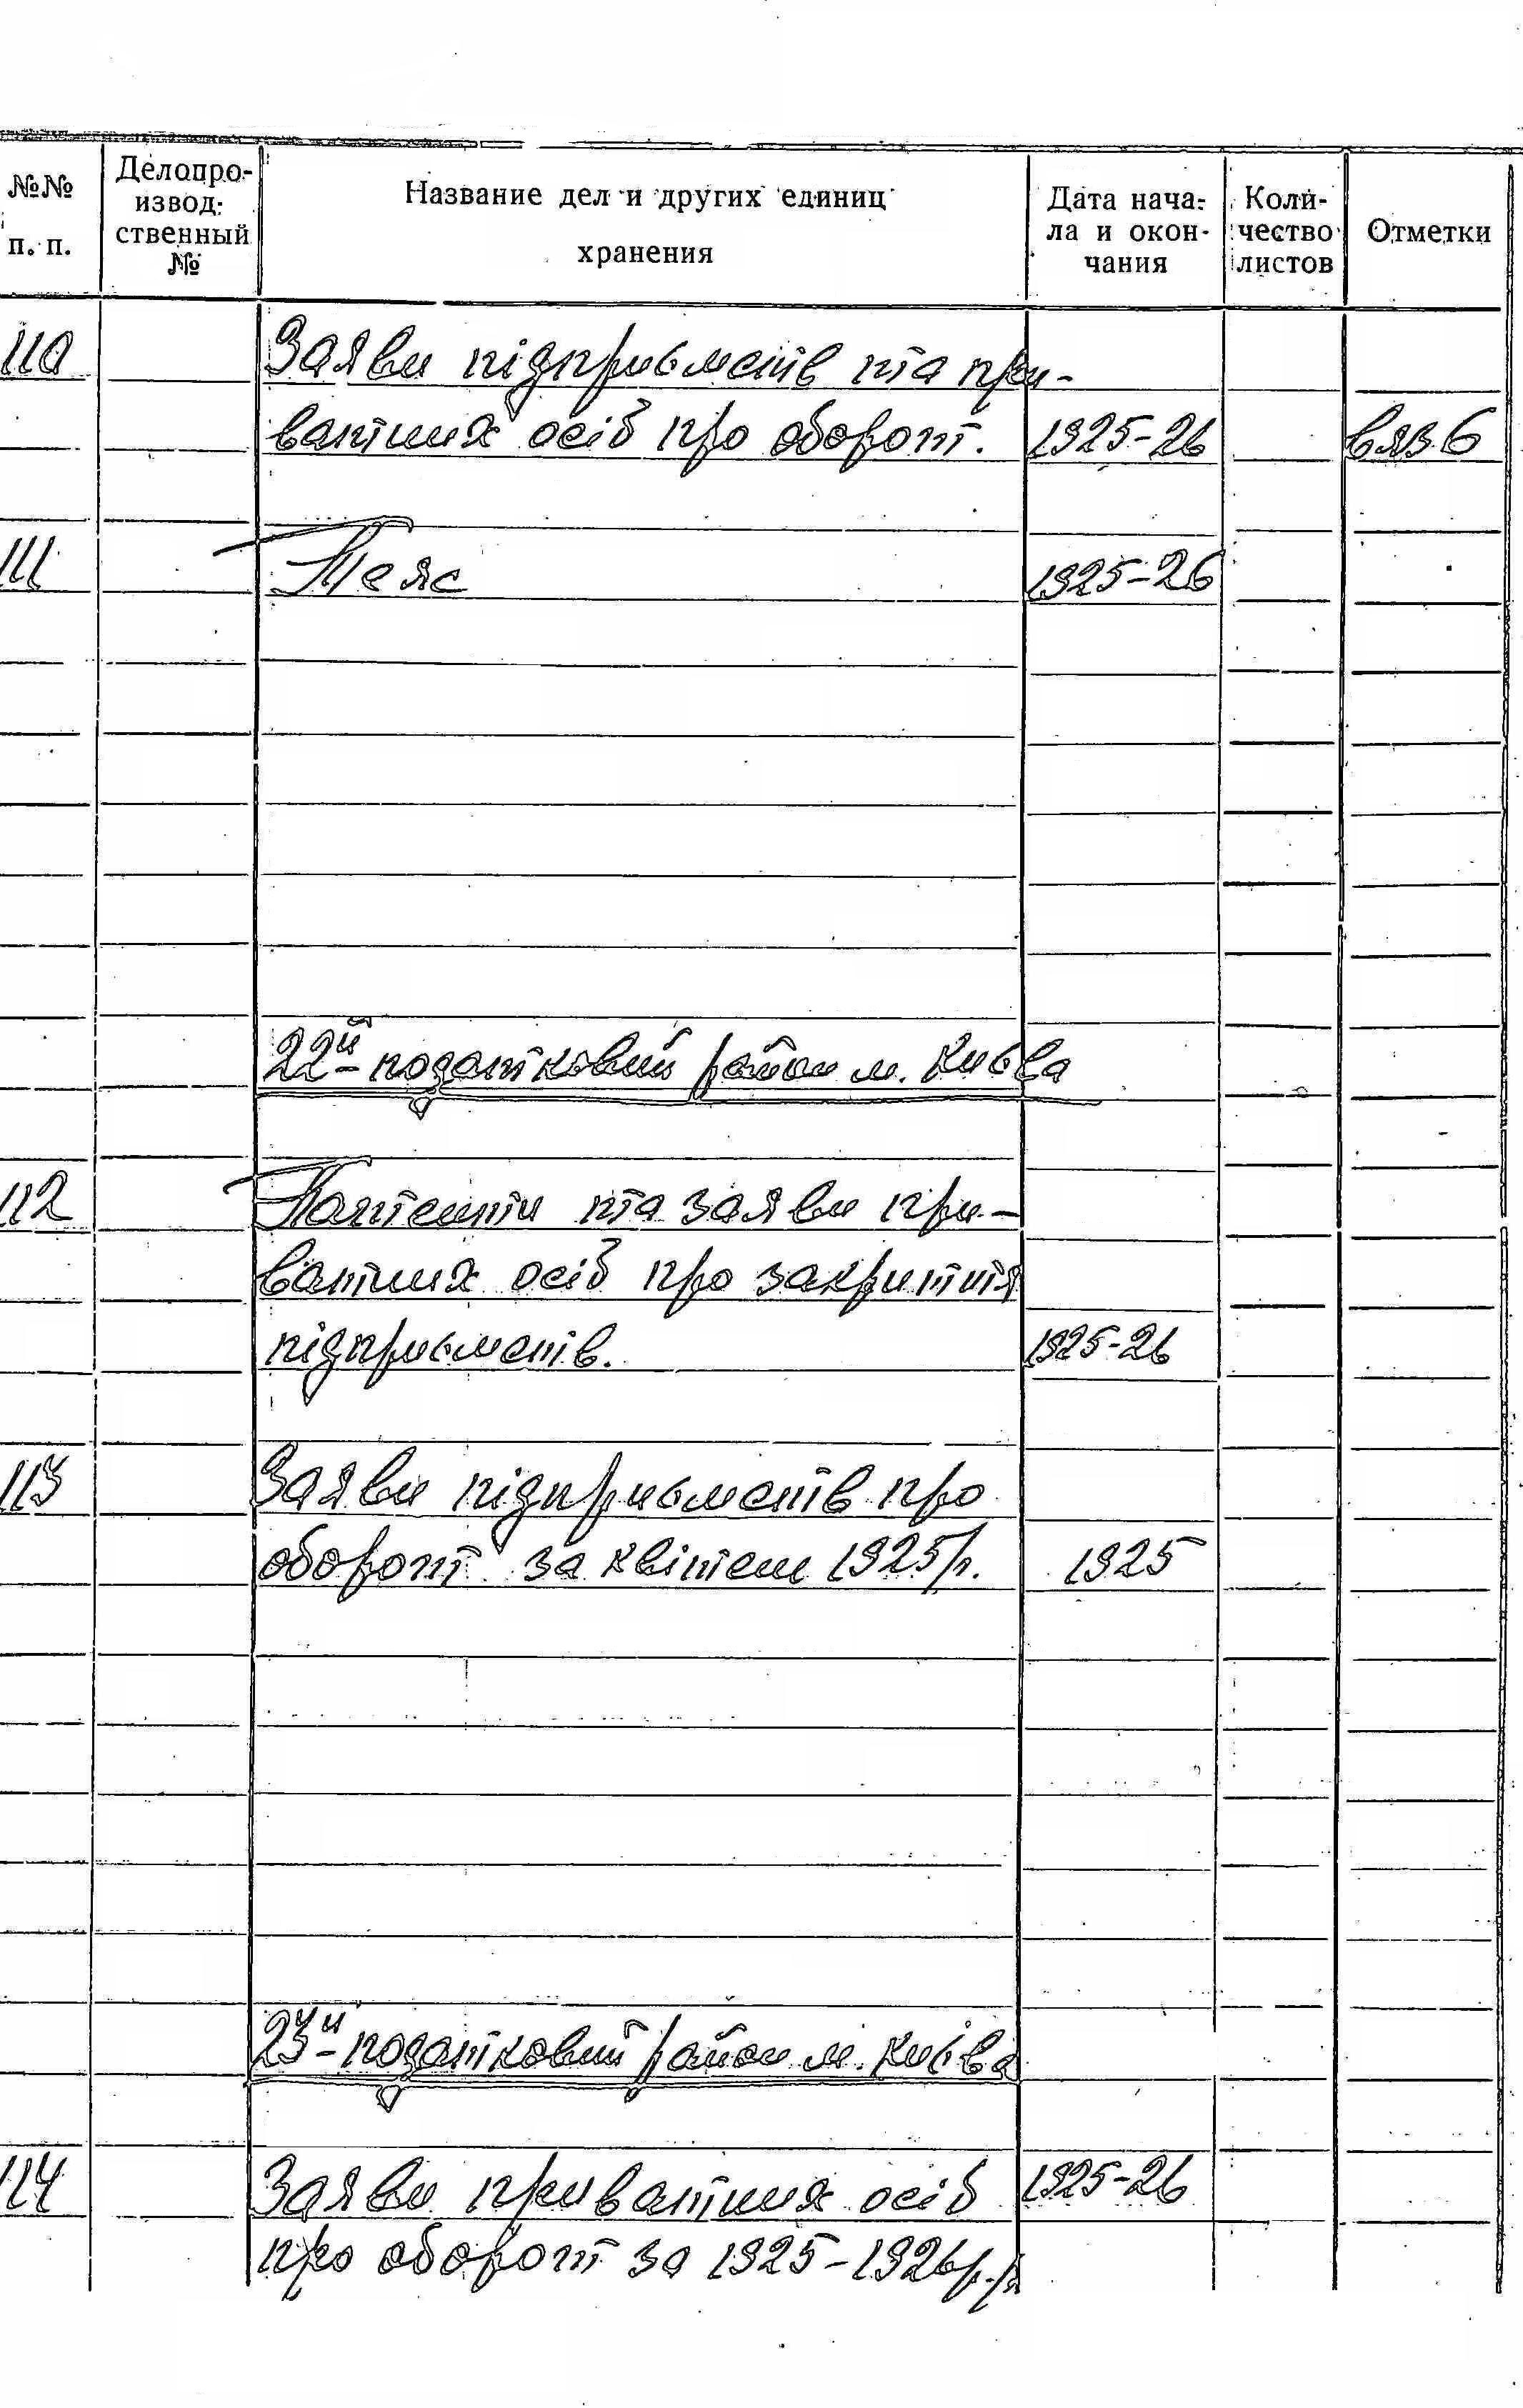 №№ п. п.
Делопро-
извод-
ственный
№
Название дел и других единиц
хранения
Дата нача-
ла и окон-
чания
Коли-
чество
листов
Отметки
110 Заяви підприємств та при-
ватних осіб про оборот. 1925-26 вяз. 6
111 Теж 1925-26
22й податковий район м. Києва
112 Патенти та заяви при-
ватних осіб про закриття
підприємств. 1925-26
113 Заяви підприємств про
оборот за квітень 1925 р. 1925
23й податковий район м. Київа
114 Заяви приватних осіб 1925-26
про оборот за 1925-1926 р.р.